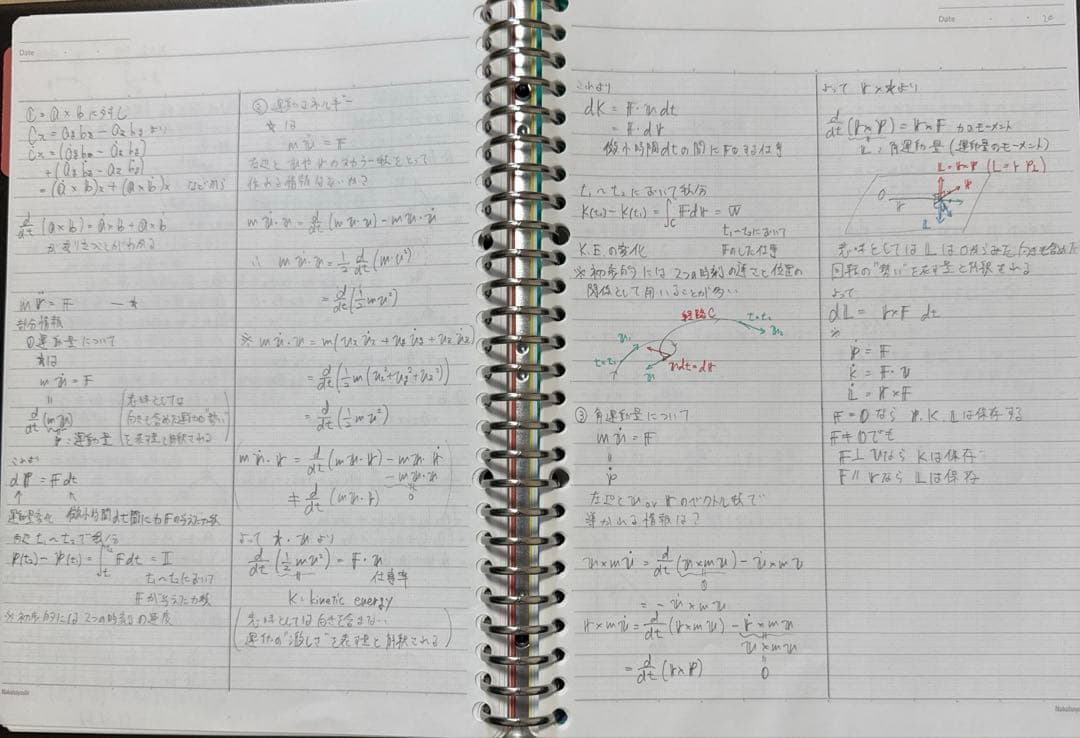 Date
ℂ = 𝕒 × 𝕓 に対し
Cx = aybz − azby より
Ċx = (ȧybz − ȧzby)
+ (ayḃz − azḃy)
= (𝕒̇ × 𝕓)x + (𝕒 × 𝕓̇)x などから
d/dt (𝕒×𝕓) = 𝕒̇×𝕓 + 𝕒×𝕓̇
が成り立つことがわかる
m𝕣̈ = 𝔽 ―*
部分情報
①運動量について
*は
m𝕧̇ = 𝔽
=
d/dt (m𝕧)
𝕡 : 運動量
意味としては
向きも含めた運動の"勢い"
を表す量と解釈できる
これより
d𝕡 = 𝔽dt
↑ ↖
運動量変化 微小時間dt間に 𝔽の与えた力積
t₁〜t₂で積分
𝕡(t₂) − 𝕡(t₁) = ∫ 𝔽dt = 𝕀
t₁〜t₂において
𝔽が与えた力積
※初歩的には2つの時刻の速度
② 運動エネルギー
*は
m𝕧̇ = 𝔽
左辺と𝕧や𝕣のスカラー積をとって
作れる情報はないか?
m𝕧̇・𝕧 = d/dt (m𝕧・𝕧) − m𝕧・𝕧̇
∴ m𝕧̇・𝕧 = 1/2 d/dt (m・v²)
= d/dt (1/2 mv²)
※ m𝕧̇・𝕧 = m(vxv̇x + vyv̇y + vzv̇z)
= d/dt (1/2 m(vx²+vy²+vz²))
= d/dt (1/2 mv²)
m𝕧̇・𝕣 = d/dt (m𝕧・𝕣) − m𝕧・𝕣̇
− m𝕧・𝕧
≠ d/dt (m𝕧・𝕣) 0
よって *・𝕧 より
d/dt (1/2 mv²) = 𝔽・𝕧
仕事率
K : kinetic energy
意味としては向きを含まない
運動の"激しさ"を表す量と解釈できる
これより
dK = 𝔽・𝕧dt
= 𝔽・d𝕣
微小時間dtの間に𝔽のする仕事
t₁〜t₂において積分
K(t₂) − K(t₁) = ∫C 𝔽d𝕣 = W
t₁〜t₂において
K.E.の変化 𝔽のした仕事
※初歩的には2つの時刻の速さと位置の
関係として用いることが多い
経路C
t=t₂
𝕧₂
𝕧₁
t=t₁
𝕧dt=d𝕣
𝕧
③ 角運動量について
m𝕧̇ = 𝔽
=
𝕡̇
左辺と𝕧 or 𝕣のベクトル積で
導かれる情報は?
𝕧×m𝕧̇ = d/dt (𝕧×m𝕧) − 𝕧̇×m𝕧
0
= −𝕧̇×m𝕧
𝕣×m𝕧̇ = d/dt (𝕣×m𝕧) − 𝕣̇×m𝕧
𝕧×m𝕧
= d/dt (𝕣×𝕡) 0
Date ・ ・ 20
よって 𝕣×*より
d/dt (𝕣×𝕡) = 𝕣×𝔽 力のモーメント
𝕃 : 角運動量 (運動量のモーメント)
𝕃=𝕣×𝕡 (L=r p⊥)
O
𝕣
意味としては 𝕃は0からみた向きも含めた
回転の"勢い"を表す量と解釈できる
よって
d𝕃 = 𝕣×𝔽 dt
※
𝕡̇ = 𝔽
K̇ = 𝔽・𝕧
𝕃̇ = 𝕣×𝔽
𝔽 = 0なら 𝕡, K, 𝕃は保存する
𝔽 ≠ 0でも
𝔽⊥𝕧なら Kは保存
𝔽∥𝕣なら 𝕃は保存
Nakabayashi